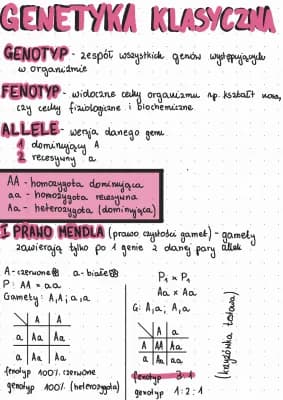 GENETYKA KLASYCZNA
GENOTYP - zespół wszystkich genów występujących
w organizmie
FENOTYP - widoczne cechy organizmu np. kształt nosa,
czy cechy fizjologiczne i biochemiczne
ALLELE - wersja danego genu
1 dominujący A
2 recesywny a
AA - homozygota dominująca
aa - homozygota recesywna
Aa - heterozygota (dominująca)
I PRAWO MENDLA (prawo czystości gamet) - gamety
zawierają tylko po 1 genie z danej pary alleli
A - czerwone a - białe
P: AA × aa
Gamety: A, A; a, a
A A
a Aa Aa
a Aa Aa
fenotyp 100% czerwone
genotyp 100% (heterozygota)
P1 × P1
Aa × Aa
G: A, a; A, a
A a
A AA Aa
a Aa aa
fenotyp 3:1
genotyp 1:2:1
(krzyżówka testowa)